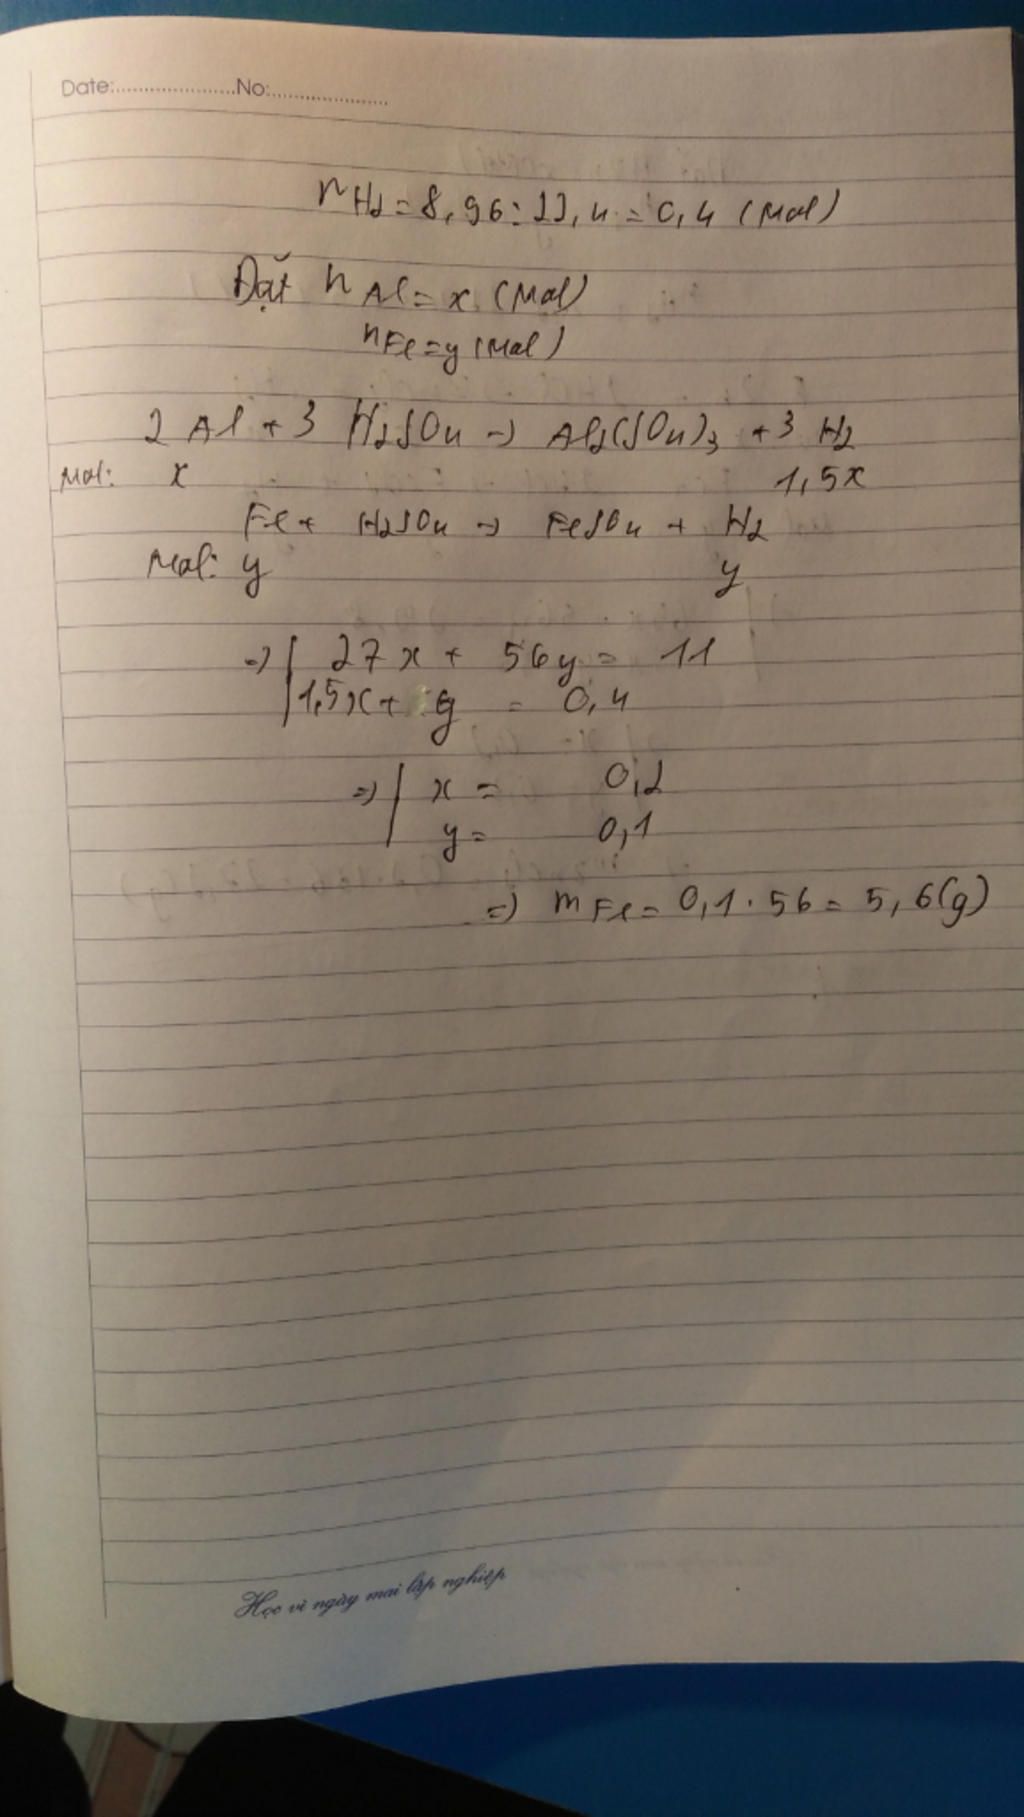 Date:......................No:.....................
nH2 = 8,96 : 22,4 = 0,4 (mol)
Đặt nAl = x (mol)
nFe = y (mol)
2 Al + 3 H2SO4 → Al2(SO4)3 + 3 H2
Mol: x 1,5x
Fe + H2SO4 → FeSO4 + H2
Mol: y y
=> | 27x + 56y = 11
| 1,5x + y = 0,4
=> | x = 0,2
| y = 0,1
=> mFe = 0,1 . 56 = 5,6 (g)
Học vì ngày mai lập nghiệp